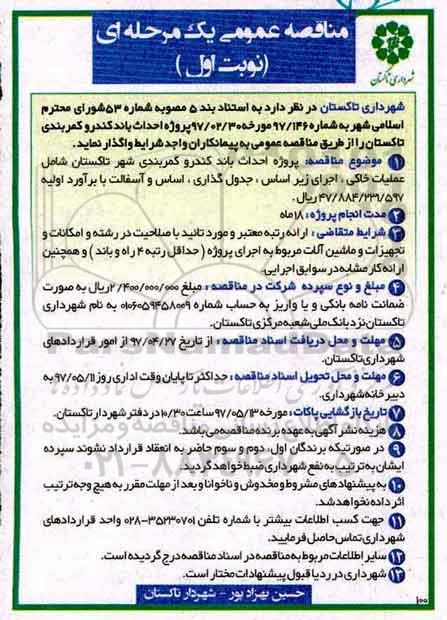 مناقصه عمومی یک مرحله ای
(نوبت اول)
شهرداری تاکستان
شهرداری تاکستان در نظر دارد به استناد بند ۵ مصوبه شماره ۵۳ شورای محترم
اسلامی شهر به شماره ۹۷/۱۴۶ مورخه ۹۷/۰۲/۳۰ پروژه احداث باند کندرو کمربندی
تاکستان را از طریق مناقصه عمومی به پیمانکاران واجد شرایط واگذار نماید.
۱ موضوع مناقصه: پروژه احداث باند کندرو کمربندی شهر تاکستان شامل
عملیات خاکی، اجرای زیر اساس، جدول گذاری، اساس و آسفالت با برآورد اولیه
۴۷/۸۸۴/۲۳۱/۵۹۷ ریال.
۲ مدت انجام پروژه: ۱۸ ماه
۳ شرایط متقاضی: ارائه رتبه معتبر و مورد تائید با صلاحیت در رشته و امکانات و
تجهیزات و ماشین آلات مربوط به اجرای پروژه (حداقل رتبه ۴ راه و باند) و همچنین
ارائه کار مشابه در سوابق اجرایی.
۴ مبلغ و نوع سپرده شرکت در مناقصه: مبلغ ۲/۴۰۰/۰۰۰/۰۰۰ ریال به صورت
ضمانت نامه بانکی و یا واریز به حساب شماره ۰۱۰۶۰۵۹۴۵۸۰۰۹ به نام شهرداری
تاکستان نزد بانک ملی شعبه مرکزی تاکستان.
۵ مهلت و محل دریافت اسناد مناقصه: از تاریخ ۹۷/۰۴/۲۷ از امور قراردادهای
شهرداری تاکستان.
۶ مهلت و محل تحویل اسناد مناقصه: حداکثر تا پایان وقت اداری روز ۹۷/۰۵/۱۱ به
دبیرخانه شهرداری.
۷ تاریخ بازگشایی پاکات: مورخه ۹۷/۰۵/۱۳ ساعت ۱۰/۳۰ در دفتر شهردار تاکستان.
۸ هزینه نشر آگهی به عهده برنده مناقصه می باشد.
۹ در صورتیکه برندگان اول، دوم و سوم حاضر به انعقاد قرارداد نشوند سپرده
ایشان به ترتیب به نفع شهرداری ضبط خواهد گردید.
۱۰ به پیشنهادهای مشروط و مخدوش و ناخوانا و بعد از مهلت مقرر به هیچ وجه ترتیب
اثر داده نخواهد شد.
۱۱ جهت کسب اطلاعات بیشتر با شماره تلفن ۳۵۲۳۰۷۰۱-۰۲۸ واحد قراردادهای
شهرداری تماس حاصل فرمایید.
۱۲ سایر اطلاعات مربوط به مناقصه در اسناد مناقصه درج گردیده است.
۱۳ شهرداری در رد یا قبول پیشنهادات مختار است.
حسین بهزاد پور - شهردار تاکستان
۱۰۰